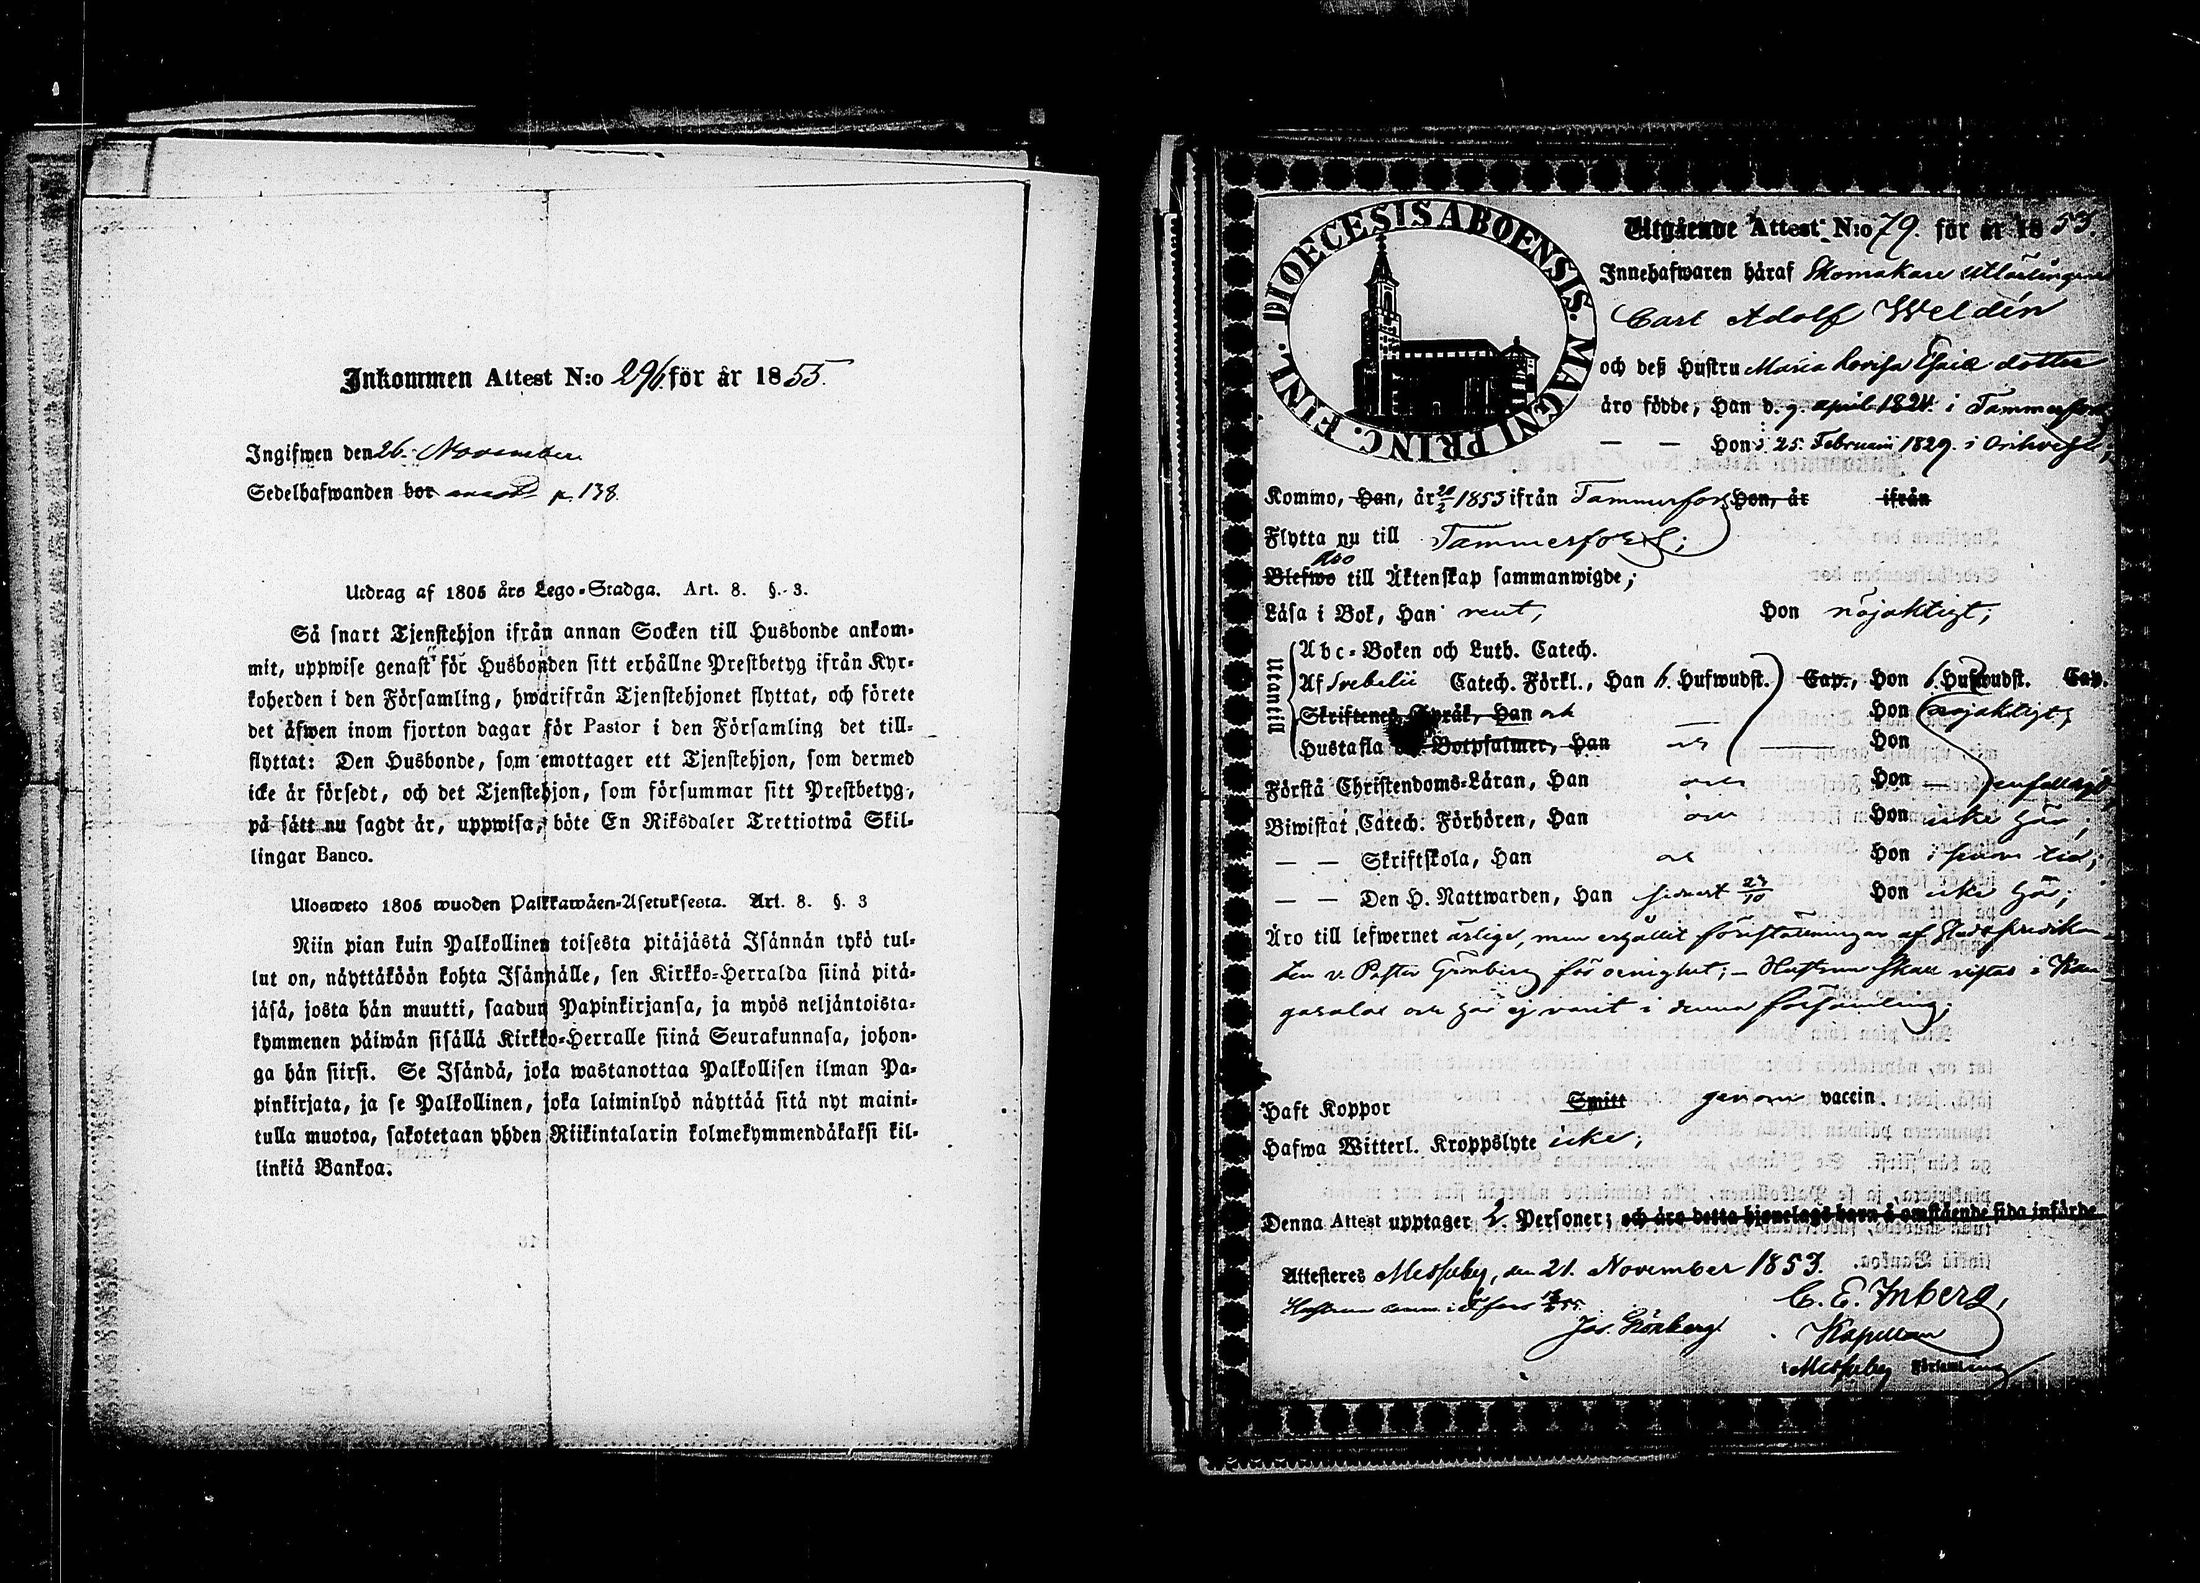 Inkommen Attest N:o 296. för år 1855.
Ingifwen den 26. November
Sedelhafwanden bor p. 138.
Utdrag af 1805 års Lego-Stadga. Art. 8. §. 3.
Så snart Tjenstehjon ifrån annan Socken till Husbonde ankom-
mit, uppwise genast för Husbonden sitt erhållne Prestbetyg ifrån Kyr-
koherden i den Församling, hwarifrån Tjenstehjonet flyttat, och förete
det äfwen inom fjorton dagar för Pastor i den Församling det till-
flyttat: Den Husbonde, som emottager ett Tjenstehjon, som dermed
icke är försedt, och det Tjenstehjon, som försummar sitt Prestbetyg,
på sätt nu sagdt är, uppwisa, böte En Riksdaler Trettiotwå Skil-
lingar Banco.
Ulosweto 1805 wuoden Palkkawäen-Asetuksesta. Art. 8. §. 3
Niin pian kuin Palkollinen toisesta pitäjästä Isännän tykö tul-
lut on, näyttäköön kohta Isännälle, sen Kirkko-Herralda siinä pitä-
jäsä, josta hän muutti, saadun Papinkirjansa, ja myös neljäntoista-
kymmenen päiwän sisällä Kirkko-Herralle siinä Seurakunnasa, johon-
ga hän siirsi. Se Isändä, joka wastanottaa Palkollisen ilman Pa-
pinkirjata, ja se Palkollinen, joka laiminlyö näyttää sitä nyt maini-
tulla muotoa, sakotetaan yhden Riikintalarin kolmekymmendäkaksi kil-
linkiä Bankoa.
DIOECESIS ABOENSIS. MAGNI PRINC. FINL.
Utgående Attest N:o 79. för år 1853.
Innehafwaren häraf Skomakare utlärlingen
Carl Adolf Weldén
och deß Hustru Maria Lovisa Esaiæ dotter
äro födde, Han d. 9. april 1824. i Tammerfors,
— — Hon d. 25. Februari 1829. i Orihvesi,
Kommo, Han, år 1853 ifrån Tammerfors Hon, år ifrån
Flytta nu till Tammerfors;
Äro
Blefwo till Äktenskap sammanwigde;
Läsa i Bok, Han rent, Hon nöjaktigt;
Utantill
Abc-Boken och Luth. Catech.
Af Svebelii Catech. Förkl., Han 6. Hufwudst. Cap., Hon 6. Hufwudst. Cap.
Skriftenes Språk, Han och — Hon nöjaktigt,
Hustafla Botpsalmer, Han och — Hon
Förstå Christendoms-Läran, Han och Hon — enfalldigt,
Biwistat Catech. Förhören, Han och Hon icke här;
— — Skriftskola, Han och Hon i sinom tid;
— — Den H. Nattwarden, Han senast 23/10 Hon icke här;
Äro till lefwernet ärlige, men erhållit föreställningar af Stadspredikan-
ten v. Pastor Grönberg för oenighet; – Hustrun skall vistas i Kan-
gasala och har ej varit i denna församling;
Haft Koppor Smitt genom vaccin.
Hafwa Witterl. Kroppslyte icke;
Denna Attest upptager 2. Personer; och äro detta hjonelags barn å omstående sida införde
Attesteres Messuby, den 21. November 1853.
C. E. Inberg,
Jos. Grönberg.
Kapellan
i Messuby Församling